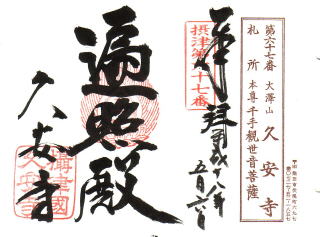 奉拝
摂津第六十七番
平成十八年
五月六日
遍照殿
久安寺
摂津國
久安寺
第六十七番 大澤山 久安寺
札所 本尊千手観世音菩薩